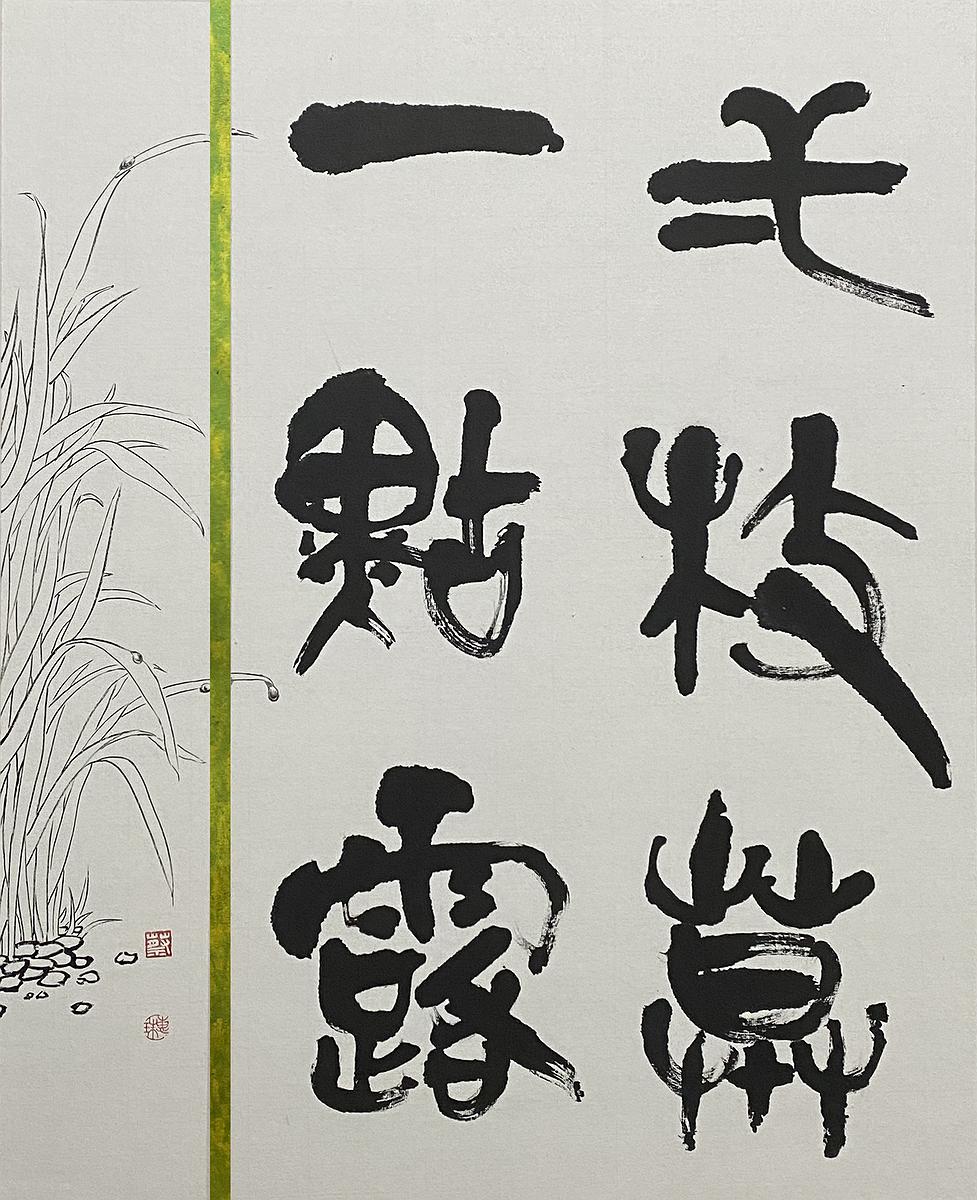 弌枝草
一點露